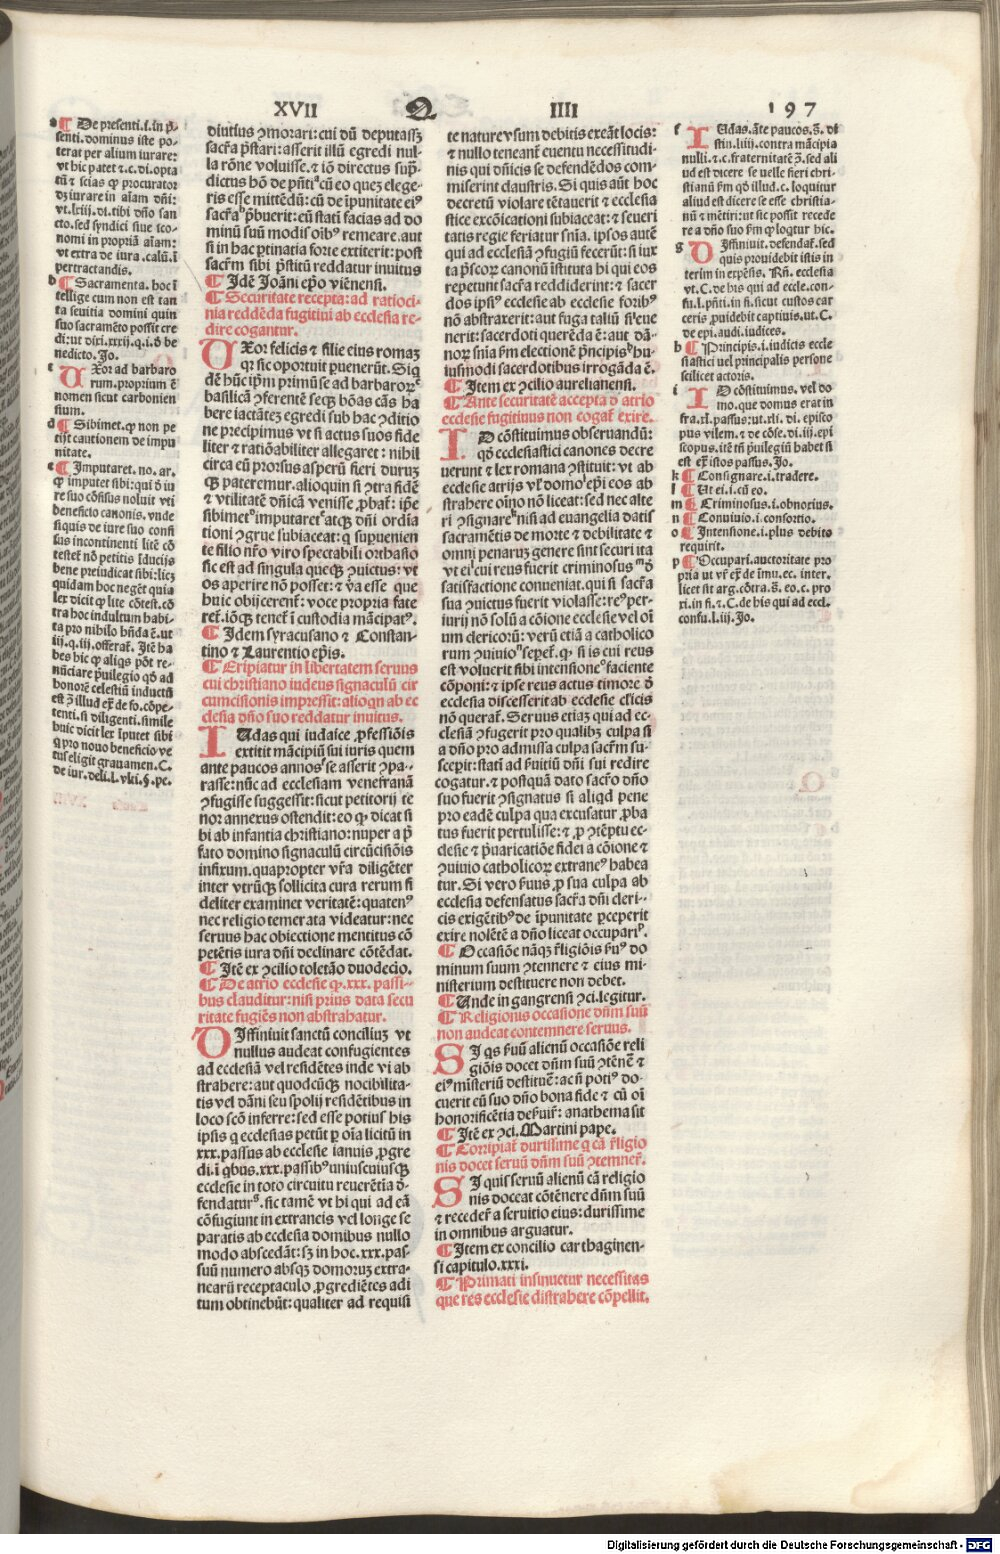 XVII Q IIII 197
a ¶ De presenti.i.in p̄-
senti.dominus iste po-
terat per alium iurare:
vt hic patet ⁊.c.di.opta
tū ⁊ scias ꝙ procurator
dʒ iurare in aīam dn̄i:
vt.lxiii.di.tibi dn̄o san
cto.sed syndici siue ico-
nomi in propriā aīam:
vt extra de iura.calū.ī
pertractandis.
b ¶ Sacramenta.hoc ī
tellige cum non est tan
ta seuitia domini quin
suo sacramēto possit cre
di:ut dixi.xxij.q.i.ō be
nedicto.Jo.
c Uxor ad barbaro
rum.proprium ē
nomen sicut carbonien
sium.
d ¶ Sibimet.ꝙ non pe
tijt cautionem de impu
nitate.
e ¶ Imputaret.no.ar.
ꝙ imputet sibi:qui ō iu
re suo cōfisus noluit vti
beneficio canonis.vnde
siquis de iure suo confi
sus incontinenti litē cō
testet̄ nō petitis īducijs
bene preiudicat sibi:licʒ
quidam hoc negēt quia
lex dicit ꝙ lite cōtest.cō
tra hoc indultum habi-
ta pro nihilo bn̄da ē.ut
iii.q.iii.offerat̄.Itē ha
bes hic ꝙ aliqs pōt re-
nūciare p̄uilegio qō ad
honorē celestiū inductū
est
tenti.si diligenti.simile
huic dicit lex īputet sibi
q pro nouo beneficio ve
tus eligit grauamen.C.
de iur.deli.l.vlti.§.pe.
diutius ꝯmorari:cui dū deputassʒ
sacr̄a p̄stari:asserit illū egredi nul-
la rōne voluisse.⁊ iō directus sup̄-
dictus hō de pn̄ti cū eo quez elege-
ris esse mittēdū:cū de īpunitate eiꝰ
sacr̄a p̄buerit:eū stati facias ad do
minū suū modis oībꝰ remeare.aut
si in hac ꝑtinatia forte extiterit:post
sacr̄m sibi p̄stitū reddatur inuitus
¶ Idē Joāni ep̄o viēnensi.
¶ Securitate recepta:ad ratioci-
nia reddēda fugitini ab ecclesia re-
dire cogantur.
Uxor felicis ⁊ filie eius romaʒ
qr sic oportuit ꝑuenerūt.Siq
dē hūc ip̄m primū se ad barbaroꝝ
basilicā ꝯferentē seqʒ bōas cās ha
bere iactātez egredi sub hac ꝯditio
ne precipimus vt si actus suos fide
liter ⁊ ratiōabiliter allegaret:nihil
circa eū prorsus asperū fieri duruʒ
qʒ pateremur.alioquin si ꝯtra fidē
⁊ vtilitatē dn̄icā venisse ꝓbat̄:ip̄e
sibimet imputaret atqʒ dn̄i ordīa
tioni ꝯgrue subiaceat:q supuenien
te filio nr̄o viro spectabili orthasio
sic est ad singula queqʒ ꝯuictus:vt
os aperire nō posset:⁊ v̄a esse que
huic obijcerent̄:voce propria fate
ret̄.iōqʒ tenet̄ ī custodia mācipatꝰ.
¶ Idem syracusano ⁊ Constan-
tino ⁊ Laurentio ep̄is.
¶ Eripiatur in libertatem seruus
cui christiano iudeus signaculū cir
cumcisionis impressit:alioqn ab ec
clesia dn̄o suo reddatur inuitus.
Iudas qui iudaice ꝓfessiōis
extitit mācipiū sui iuris quem
ante paucos annos se asserit ꝯpa-
rasse:nūc ad ecclesiam venefranā
ꝯfugisse suggessit:sicut petitorij te
nor annexus ostendit:eo ꝙ dicat si
bi ab infantia christiano:nuper a p̄
fato domino signaculū circūcisiōis
infixum.quapropter vr̄a diligēter
inter vtrūqʒ sollicita cura rerum fi
deliter examinet veritatē:quatenꝰ
nec religio temerata videatur:nec
seruus hac obiectione mentitus cō
petētis iura dn̄i declinare cōtēdat.
¶ Itē ex ꝯcilio toletāo duodecīo.
¶ De atrio ecclesie ꝙ.xxx.passi-
bus clauditur:nisi prius data secu
ritate fugiēs non abstrahatur.
Diffiniuit sanctū conciliuʒ vt
nullus audeat confugientes
ad ecclesiā vel residētes inde vi ab
strahere:aut quodcūqʒ nocibilita-
tis vel dāni seu spolij residētibus in
loco scō inferre:sed esse potius his
ipsis q ecclesias petūt ꝑ oīa licitū in
xxx.passus ab ecclesie ianuis ꝓgre
di.ī qbus.xxx.passibꝰ uniuscuiusqʒ
ecclesie in toto circuitu reuerētia d̄-
fendatur.sic tamē vt hi qui ad eā
cōfugiunt in extraneis vel longe se
paratis ab ecclesia domibus nullo
modo abscedāt:sʒ in hoc.xxx.pas-
suū numero absqʒ domoruʒ extra-
nearū receptaculo ꝓgrediētes adi
tum obtinebūt:qualiter ad requisi
te nature vsum debitis exeāt locis:
⁊ nullo teneant̄ euentu necessitudi-
nis qui dn̄icis se defendēdos com-
miserint claustris.Si quis aūt hoc
decretū violare tētauerit ⁊ ecclesia
stice excōicationi subiaceat:⁊ seueri
tatis regie feriatur sn̄ia.ipsos autē
qui ad ecclesiā ꝯfugiū fecerūt:si iux
ta p̄scorꝝ canonū īstituta hi qui eos
repetunt sacr̄a reddiderint:⁊ sacer
dos ipsiꝰ ecclesie ab ecclesie foribꝰ
nō abstraxerit:aut fuga taliū si euē
nerit:sacerdoti querēda ē:aut dā-
noꝝ sn̄ia fm electionē p̄ncipis hu-
iusmodi sacerdotibus irrogāda ē.
¶ Item ex ꝯcilio aurelianensi.
¶ Ante securitatē accepta d̄ atrio
ecclesie fugitiuus non cogat̄ exire.
Id cōstituimus obseruandū:
qō ecclesiastici canones decre
uerunt ⁊ lex romana ꝯstituit:vt ab
ecclesie atrijs vl̄ domo ep̄i eos ab
strahere oīno nō liceat:sed nec alte
ri ꝯsignare nisi ad euangelia datis
sacramētis de morte ⁊ debilitate ⁊
omni penaruʒ genere sint securi ita
vt ei cui reus fuerit criminosus d̄
satisfactione conueniat.qui si sacr̄a
sua ꝯuictus fuerit violasse:reꝰ per-
iurij nō solū a cōione ecclesie vel oī
um clericorū:verū etiā a catholico
rum ꝯuiuio sepet̄.ꝙ si is cui reus
est voluerit sibi intensione faciente
cōponi:⁊ ipse reus actus timore d̄
ecclesia discesserit ab ecclesie cl̄icis
nō querat̄.Seruus etiaʒ qui ad ec-
clesiā ꝯfugerit pro qualibʒ culpa si
a dn̄o pro admissa culpa sacr̄m su-
sceperit:stati ad s̄uitiū dn̄i sui redire
cogatur.⁊ postquā dato sacr̄o dn̄o
suo fuerit ꝯsignatus si aliqd pene
pro eadē culpa qua excusatur ꝓba
tus fuerit pertulisse:⁊ ꝓ ꝯtēptu ec-
clesie ⁊ p̄uaricatiōe fidei a cōione ⁊
ꝯuiuio catholicoꝝ extraneꝰ habea
tur.Si vero s̄uus ꝓ sua culpa ab
ecclesia defensatus sacr̄a dn̄i cleri-
cis exigētibꝰ de īpunitate ꝑceperit
exire nolētē a dn̄o liceat occupari.
¶ Occasiōe nāqʒ r̄ligiōis s̄uꝰ do
minum suum ꝯtennere ⁊ eius mi-
nisterium destituere non debet.
¶ Unde in gangrensi ꝯci.legitur.
¶ Religionis occasione dn̄m suū
non audeat contemnere seruus.
Si qs s̄uū alienū occasiōe reli
giōis docet dn̄m suū ꝯtēnē ⁊
eiꝰ mīsteriū destituē:ac n̄ potiꝰ do-
cuerit eū suo dn̄o bona fide ⁊ cū oī
honorificētia deſuir̄:anathema sit
¶ Itē ex ꝯci.Martini pape.
¶ Corripiat̄ durissime q cā r̄ligio
nis docet seruū dn̄m suū ꝯtemner̄.
Si quis seruū alienū cā religio
nis doceat cōtēnere dn̄m suū
⁊ receder̄ a seruitio eius:durissime
in omnibus arguatur.
¶ Item ex concilio carthaginen-
si capitulo.xxxi.
¶ Primati insinuetur necessitas
que res ecclesie distrahere cōpellit.
f Iudas.āte paucos.s̄.di
stin.liiij.contra mācipia
nulli.⁊.c.fraternitatē ꝫ.sed ali
ud est dicere se uelle fieri chri-
stianū fm qō illud.c.loquitur
aliud est dicere se esse christia-
nū ⁊ mētiri:ut sic possit recede
re a dn̄o suo fm ꝙ loqtur hic.
g Diffiniuit.defendat̄.sed
quis prouidebit istis in
terim in expēsis.Rn̄.ecclesia
vt.C.de his qui ad eccle.con-
fu.l.pn̄ti.in fi.sicut custos car
ceris ꝓuidebit captiuis.ut.C.
de epi.audi.iudices.
h ¶ Principis.i.iudicis eccle
siastici uel principalis persone
scilicet actoris.
i Id cōstituimus.vel do
mo.que domus erat in
fra.xl.passus:ut.xli.di.episco
pus vilem.⁊ de cōse.di.iii.ep̄i
scopus.itē tn̄ p̄uilegiū habet si
est ex̄ istos passus.Jo.
k ¶ Consignare.i.tradere.
l ¶ Ut ei.i.cū eo.
m ¶ Criminosus.i.obnoxius.
n ¶ Conuiuio.i.consortio.
o ¶ Intensione.i.plus debito
requirit.
p ¶ Occupari.auctoritate pro
pria ut vr̄ ex̄ de īmu.ec.inter.
licet sit arg.cōtra.s̄.eo.c.pro
xi.in fi.⁊.C.de his qui ad eccl.
confu.l.iij.Jo.
Digitalisierung gefördert durch die Deutsche Forschungsgemeinschaft - DFG